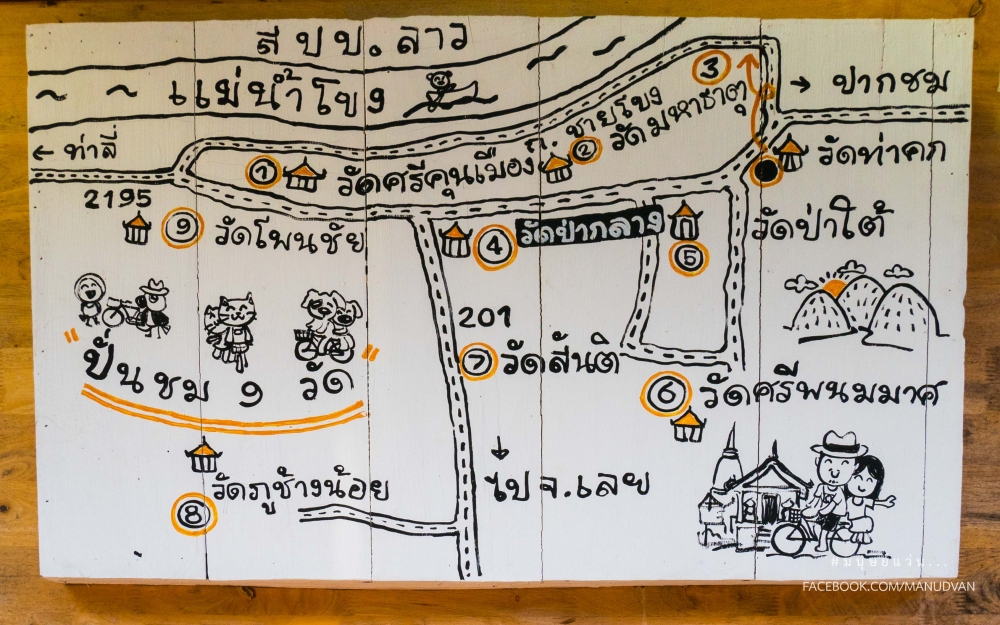 ส ป ป . ลาว
แม่น้ำโขง
→ ปากชม
← ท่าลี่
2195
① วัดศรีคุนเมือง
ชายโขง
② วัดมหาธาตุ
③
วัดท่าคก
⑨ วัดโพนชัย
④ วัดป่ากลาง
⑤
วัดป่าใต้
201
⑦ วัดสันติ
"ปั่นชม 9 วัด"
⑥ วัดศรีพนมมาศ
วัดภูช้างน้อย
⑧
ไป จ.เลย
#มนุษย์แว่น...
FACEBOOK.COM/MANUDVAN